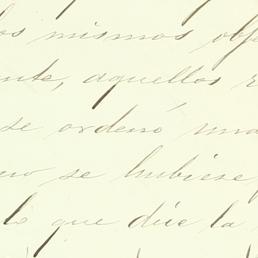 los mismos obje
ente, aquellos
se ordenó una
no se hubiese
lo que dice la